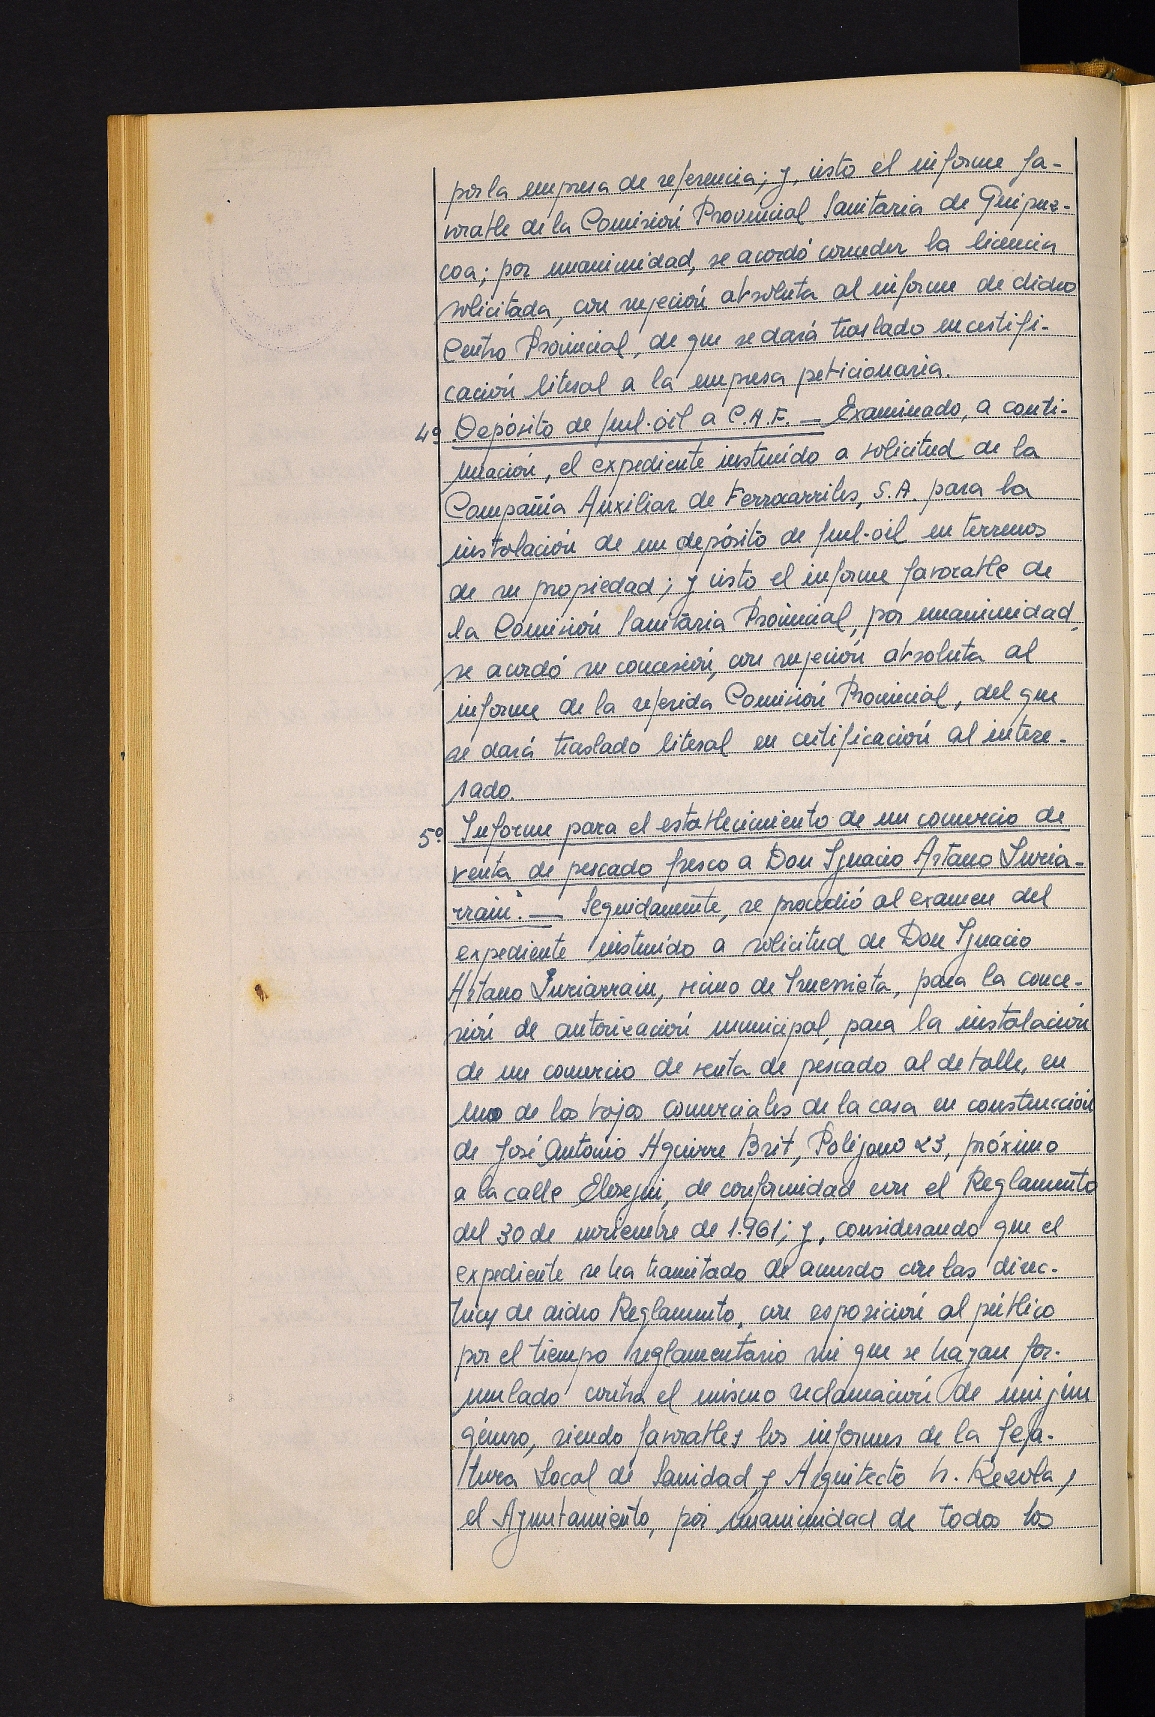 por la empresa de referencia; y, visto el informe fa-
vorable de la Comisión Provincial Sanitaria de Guipuz-
coa; por unanimidad, se acordó conceder la licencia
solicitada, con sujeción absoluta al informe de dicho
Centro Provincial, de que se dará traslado en certifi-
cación literal a la empresa peticionaria.
4º Depósito de fuel-oil a C.A.F. — Examinado, a conti-
nuación, el expediente instruído a solicitud de la
Compañía Auxiliar de Ferrocarriles, S.A. para la
instalación de un depósito de fuel-oil en terrenos
de su propiedad; y visto el informe favorable de
la Comisión Sanitaria Provincial, por unanimidad,
se acordó su concesión, con sujeción absoluta al
informe de la referida Comisión Provincial, del que
se dará traslado literal en certificación al intere-
sado.
5º Informe para el establecimiento de un comercio de
venta de pescado fresco a Don Ignacio Artano Iuria-
rrain. — Seguidamente, se procedió al examen del
expediente instruído a solicitud de Don Ignacio
Artano Iuriarrain, vecino de, para la conce-
sión de autorización municipal, para la instalación
de un comercio de venta de pescado al detalle, en
uno de los bajos comerciales de la casa en construcción
de José Antonio Aguirre Brit, Polígono 23, próximo
a la calle Elosegui, de conformidad con el Reglamento
del 30 de noviembre de 1.961; y, considerando que el
expediente se ha tramitado de acuerdo con las direc-
trices de dicho Reglamento, con esposición al público
por el tiempo reglamentario sin que se hayan for-
mulado contra el mismo reclamación de ningún
género, siendo favorables los informes de la Jefa-
tura Local de Sanidad y Arquitecto Sr. Rezola,
el Ayuntamiento, por unanimidad de todos los